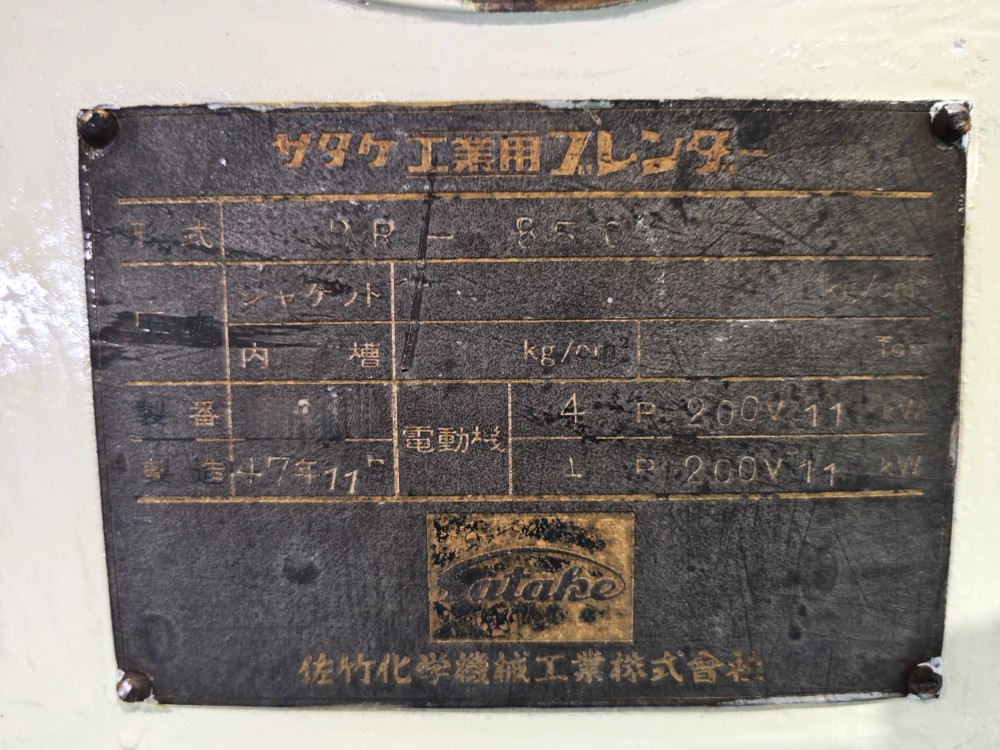 サタケ工業用ブレンダー
形式 R - 850
ジャケット kg/cm²
内槽 kg/cm² Torr
製番 電動機 4 P 200V 11 kW
製造 47年11月 P 200V 11 kW
Satake
佐竹化学機械工業株式會社